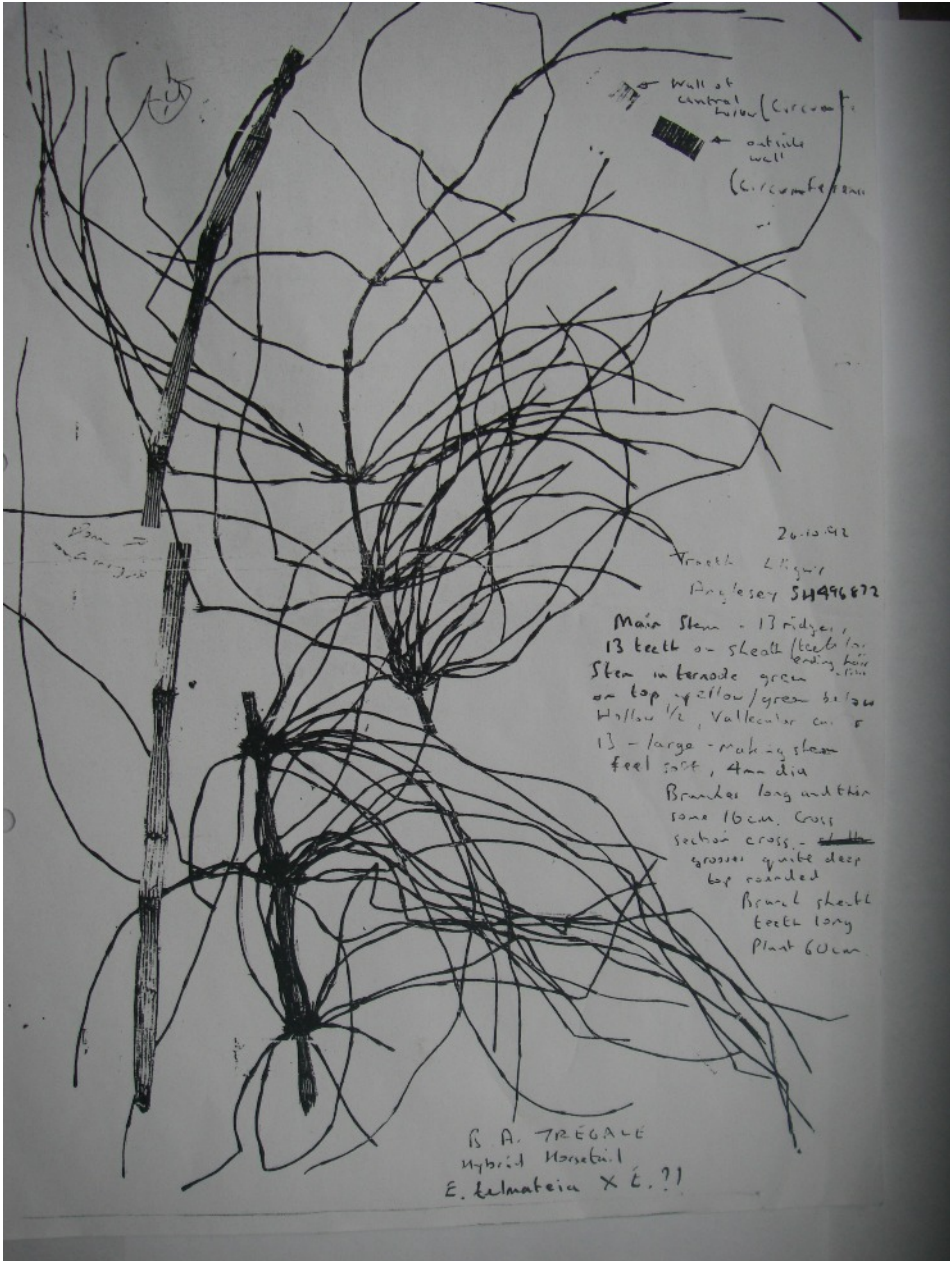 wall of
central
(Circumf
outside
wall
(Circumferen
26.10.92
Traeth Lligwy
Anglesey SH496872
Main Stem - 13 ridges,
13 teeth on sheath (teeth
ending hair
Stem internode green
on top yellow/green below
Hollow 1/2, Vallecular
13 - large - making stem
feel soft, 4mm dia
Branches long and thin
some 16cm. Cross
section cross -
grooves quite deep
top rounded
Branch sheath
teeth long
Plant 60cm.
B. A. TREGALE
Hybrid Horsetail
E. telmateia X E. ?!